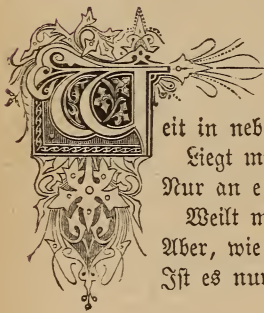 Weit in neb
Liegt m
Nur an e
Weilt m
Aber, wie
Ist es nur